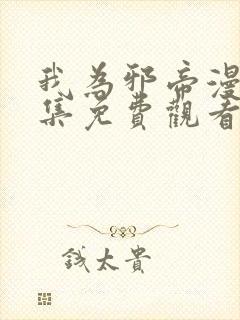 我為邪帝漫
集免費觀看
錢太貴